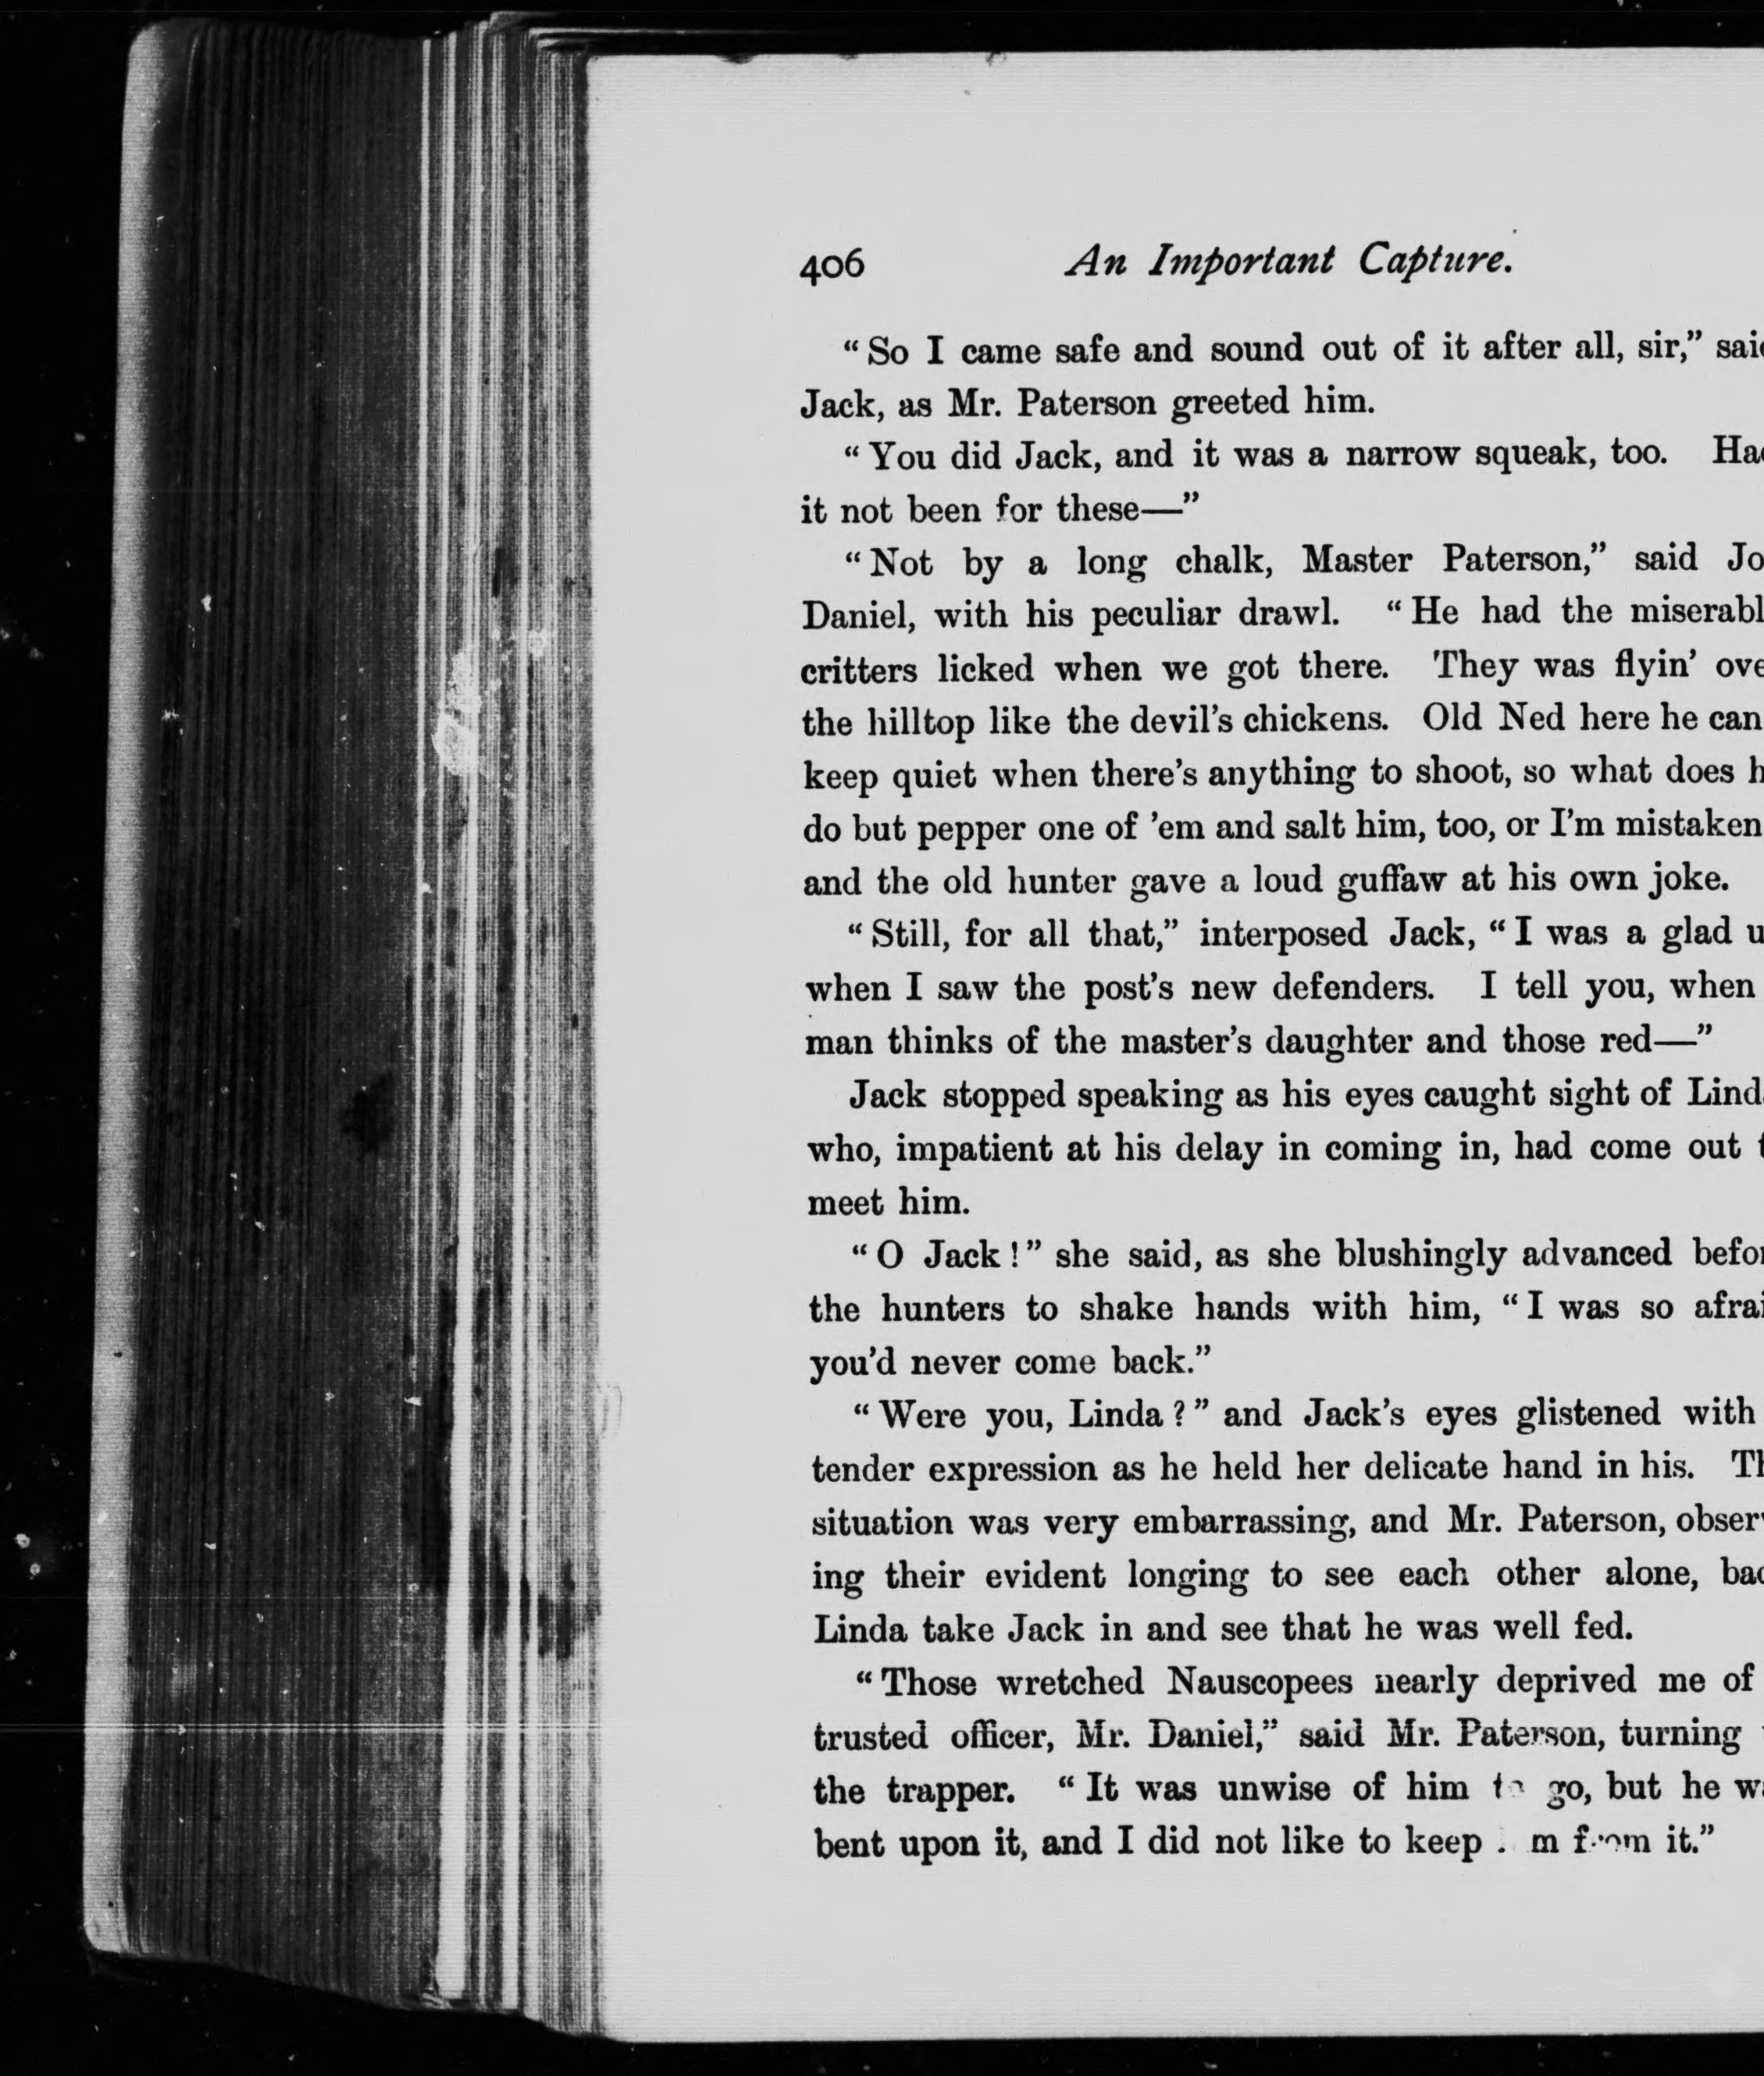 406 An Important Capture.
“So I came safe and sound out of it after all, sir,”
Jack, as Mr. Paterson greeted him.
“You did Jack, and it was a narrow squeak, too.
it not been for these—”
“Not by a long chalk, Master Paterson,” said
Daniel, with his peculiar drawl. “He had the
critters licked when we got there. They was flyin’
the hilltop like the devil’s chickens. Old Ned here he
keep quiet when there’s anything to shoot, so what does
do but pepper one of ’em and salt him, too, or I’m mistaken
and the old hunter gave a loud guffaw at his own joke.
“Still, for all that,” interposed Jack, “I was a glad
when I saw the post’s new defenders. I tell you, when
man thinks of the master’s daughter and those red—”
Jack stopped speaking as his eyes caught sight of
who, impatient at his delay in coming in, had come out
meet him.
“O Jack!” she said, as she blushingly advanced
the hunters to shake hands with him, “I was so
you’d never come back.”
“Were you, Linda?” and Jack’s eyes glistened with
tender expression as he held her delicate hand in his.
situation was very embarrassing, and Mr. Paterson,
ing their evident longing to see each other alone,
Linda take Jack in and see that he was well fed.
“Those wretched Nauscopees nearly deprived me of
trusted officer, Mr. Daniel,” said Mr. Paterson, turning
the trapper. “It was unwise of him to go, but he
bent upon it, and I did not like to keep from it.”